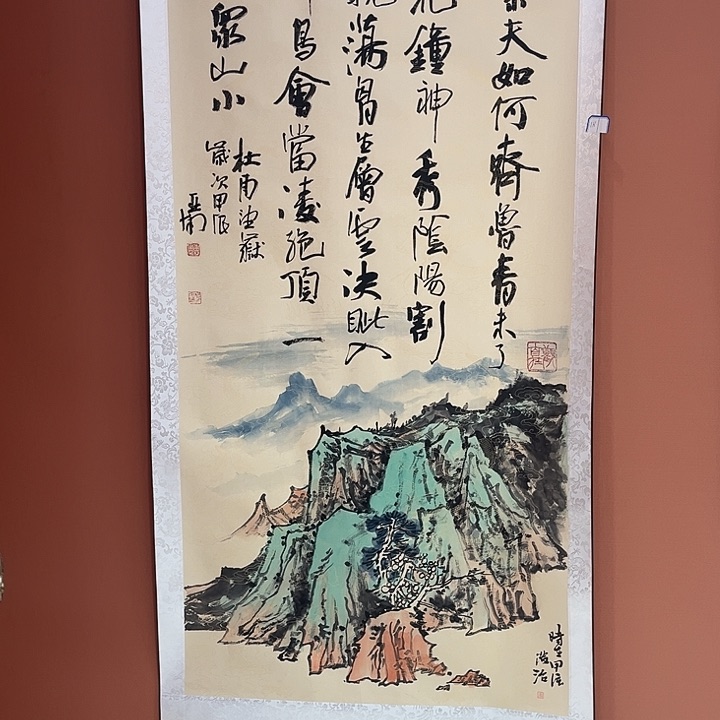 宗夫如何齊魯青未了
化鐘神秀陰陽割
蕩胷生層雲決眦入
鳥會當凌絕頂一
眾山小
杜甫望嶽
歲次甲辰
時在甲辰